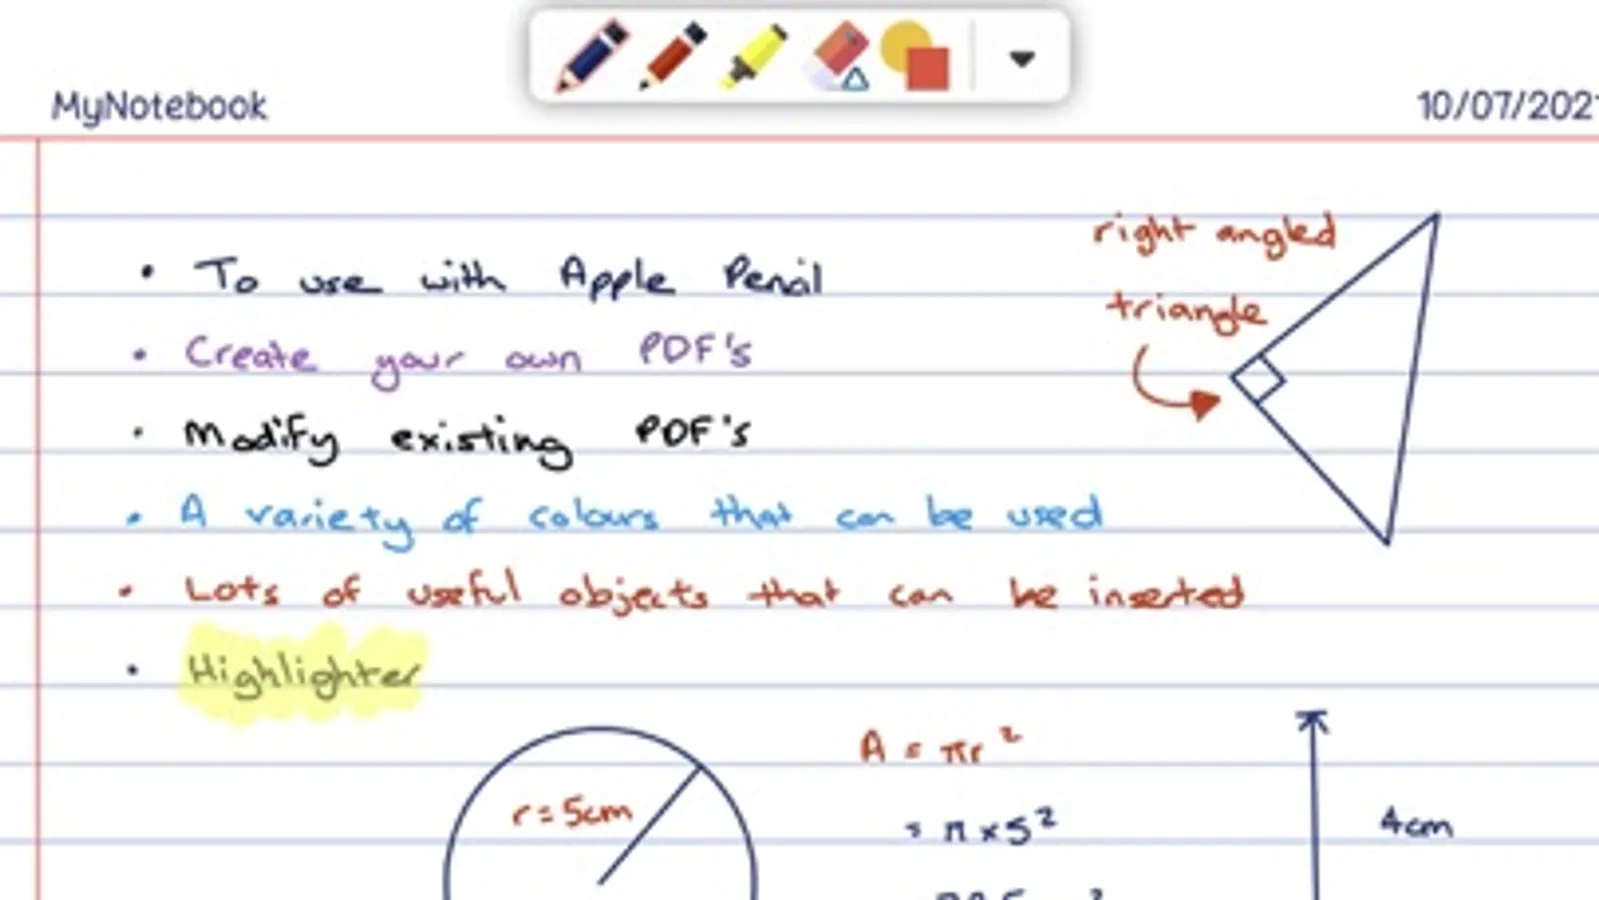 MyNotebook
10/07/202
• To use with Apple Pencil
• Create your own PDF's
• Modify existing PDF's
• A variety of colours that can be used
• Lots of useful objects that can be inserted
• Highlighter
right angled
triangle
r=5cm
A = πr²
= π×5²
4cm